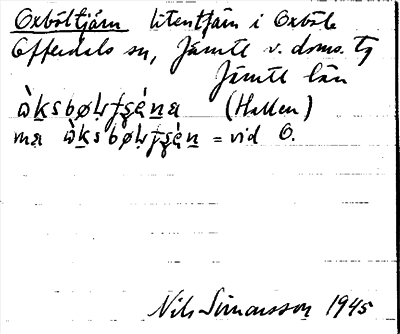 Oxböltjärn liten tjärn i Oxböle
Offerdals sn, Jämtl v. doms. tg
Jämtl län
(Hallen)
= vid O.
Nils Simonsson 1945